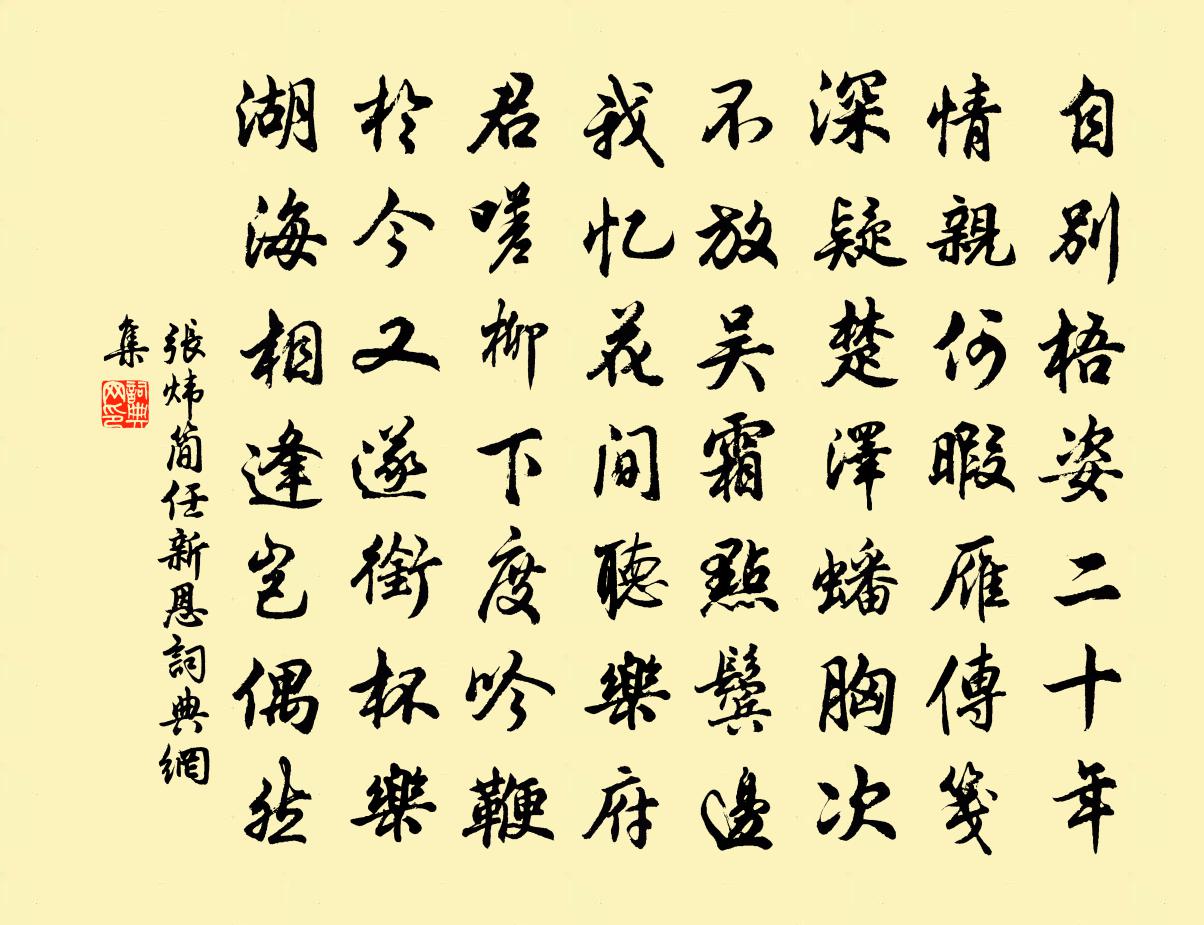 自別梧姿二十年
情親何暇雁傳箋
深疑楚澤蟠胸次
不放吴霜點鬢邊
我忆花间聽樂府
君嗟柳下度吟鞭
於今又遂銜杯樂
湖海相逢岂偶然
張炜简任新恩詞典網
集
詞典
网印